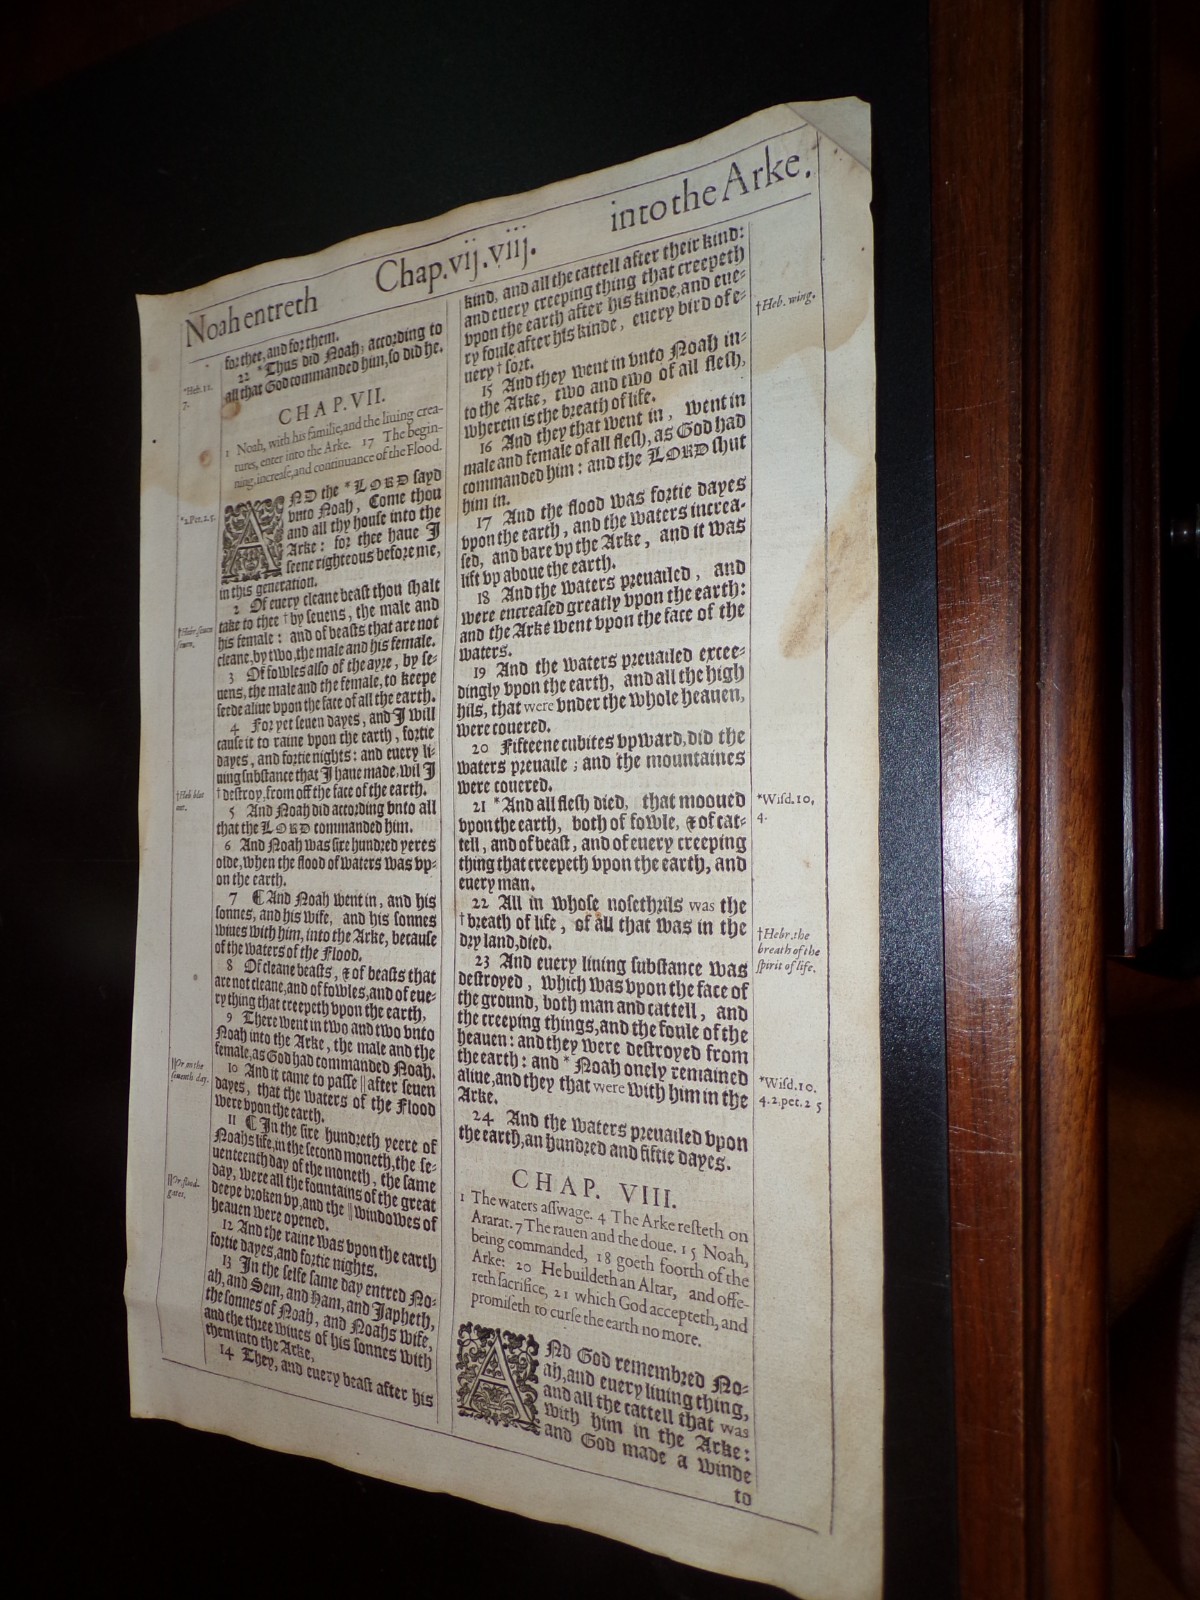 Noah entreth Chap.vij.viij. into the Arke.
for thee, and for them.
22 *Thus did Noah; according to
all that God commanded him, so did he.
*Heb. 11.
7.
CHAP. VII.
1 Noah, with his familie, and the liuing crea-
tures, enter into the Arke. 17 The begin-
ning, increase, and continuance of the Flood.
AND the *LORD sayd
vnto Noah, Come thou
and all thy house into the
Arke: for thee haue I
seene righteous before me,
in this generation.
*2.Pet.2.5.
2 Of euery cleane beast thou shalt
take to thee †by seuens, the male and
his female: and of beasts that are not
cleane, by two, the male and his female.
†Hebr. seuen
seuen.
3 Of fowles also of the ayre, by se-
uens, the male and the female, to keepe
seede aliue vpon the face of all the earth.
4 For yet seuen dayes, and I will
cause it to raine vpon the earth, fortie
dayes, and fortie nights: and euery li-
uing substance that I haue made, wil I
†destroy, from off the face of the earth.
†Heb. blot
out.
5 And Noah did according vnto all
that the LORD commanded him.
6 And Noah was sixe hundred yeres
olde, when the flood of waters was vp-
on the earth.
7 ¶ And Noah went in, and his
sonnes, and his wife, and his sonnes
wiues with him, into the Arke, because
of the waters of the Flood.
8 Of cleane beasts, & of beasts that
are not cleane, and of fowles, and of eue-
ry thing that creepeth vpon the earth,
9 There went in two and two vnto
Noah into the Arke, the male and the
female, as God had commanded Noah.
10 And it came to passe ‖after seuen
dayes, that the waters of the Flood
were vpon the earth.
‖Or, on the
seuenth day.
11 ¶ In the sixe hundreth yeere of
Noahs life, in the second moneth, the se-
uenteenth day of the moneth, the same
day, were all the fountaines of the great
deepe broken vp, and the ‖windowes of
heauen were opened.
‖Or, flood-
gates.
12 And the raine was vpon the earth
fortie dayes, and fortie nights.
13 In the selfe same day entred No-
ah, and Sem, and Ham, and Japheth,
the sonnes of Noah, and Noahs wife,
and the three wiues of his sonnes with
them into the Arke,
14 They, and euery beast after his
kind, and all the cattell after their kind:
and euery creeping thing that creepeth
vpon the earth after his kinde, and eue-
ry foule after his kinde, euery bird of e-
uery †sort.
†Heb. wing.
15 And they went in vnto Noah in-
to the Arke, two and two of all flesh,
wherein is the breath of life.
16 And they that went in, went in
male and female of all flesh, as God had
commanded him: and the LORD shut
him in.
17 And the flood was fortie dayes
vpon the earth, and the waters increa-
sed, and bare vp the Arke, and it was
lift vp aboue the earth.
18 And the waters preuailed, and
were encreased greatly vpon the earth:
and the Arke went vpon the face of the
waters.
19 And the waters preuailed excee-
dingly vpon the earth, and all the high
hils, that were vnder the whole heauen,
were couered.
20 Fifteene cubites vpward, did the
waters preuaile; and the mountaines
were couered.
21 *And all flesh died, that mooued
vpon the earth, both of fowle, & of cat-
tell, and of beast, and of euery creeping
thing that creepeth vpon the earth, and
euery man.
*Wisd.10.
4.
22 All in whose nosethrils was the
†breath of life, of all that was in the
dry land, died.
†Hebr. the
breath of the
spirit of life.
23 And euery liuing substance was
destroyed, which was vpon the face of
the ground, both man and cattell, and
the creeping things, and the foule of the
heauen: and they were destroyed from
the earth: and *Noah onely remained
aliue, and they that were with him in the
Arke.
*Wisd.10.
4.2.pet.2 5
24 And the waters preuailed vpon
the earth, an hundred and fiftie dayes.
CHAP. VIII.
1 The waters asswage. 4 The Arke resteth on
Ararat. 7 The rauen and the doue. 15 Noah,
being commanded, 18 goeth foorth of the
Arke: 20 He buildeth an Altar, and offe-
reth sacrifice, 21 which God accepteth, and
promiseth to curse the earth no more.
AND God remembred No-
ah, and euery liuing thing,
and all the cattell that was
with him in the Arke:
and God made a winde
to